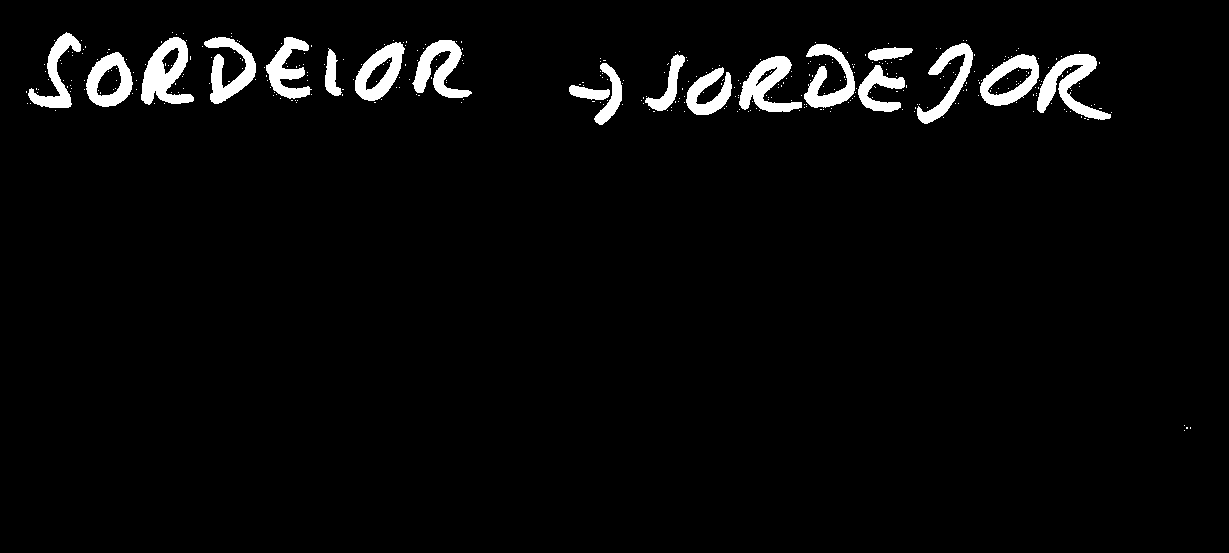 SORDEIOR → SORDEJOR